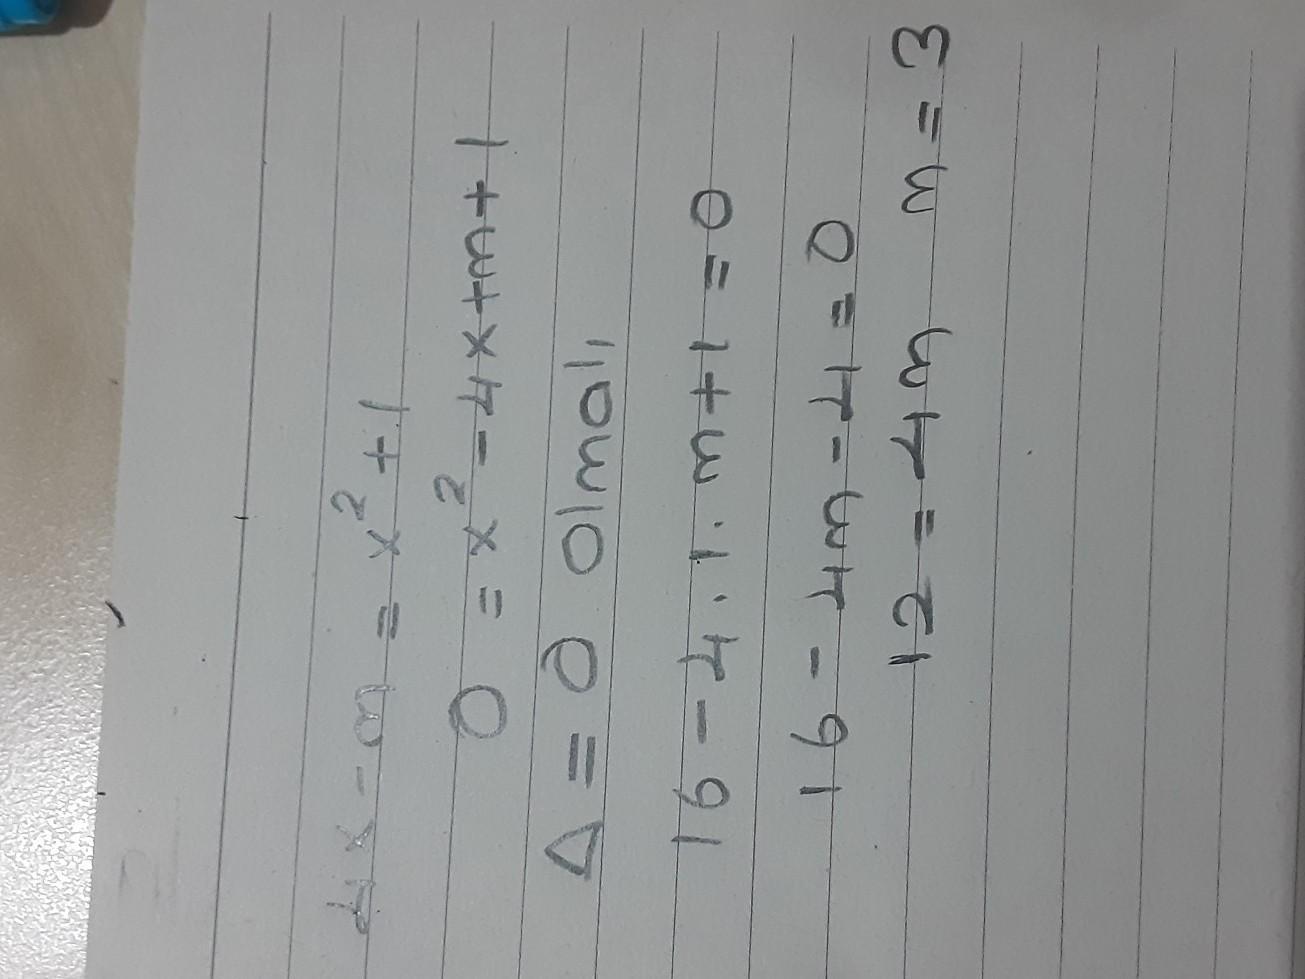 4x - m = x² + 1
0 = x² - 4x + m + 1
Δ = 0 olmalı
16 - 4 . 1 . m + 1 = 0
16 - 4m - 4 = 0
12 = 4m m = 3